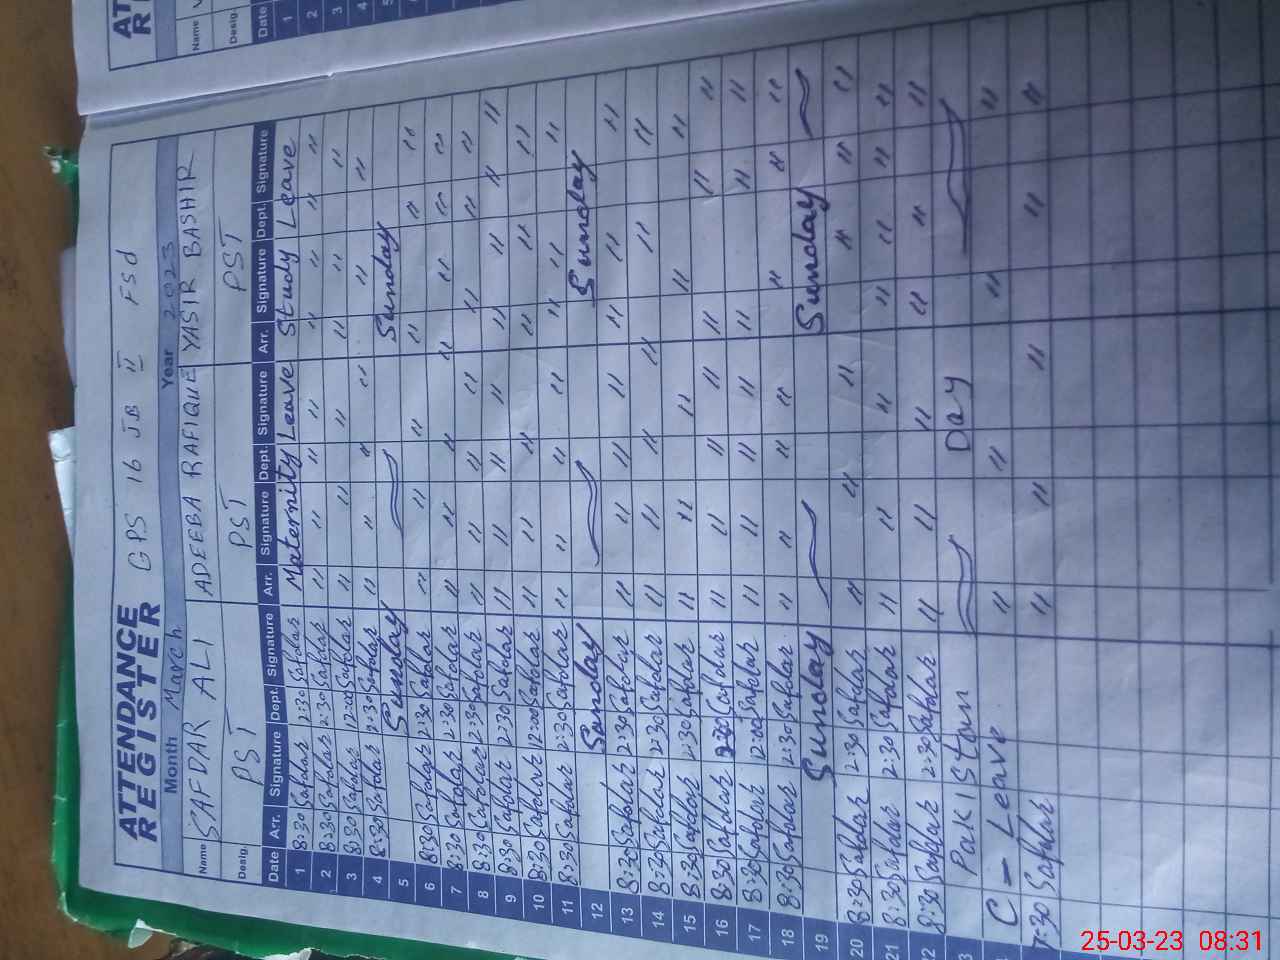 ATTENDANCE REGISTER GPS 16 JB II Fsd
Month March Year 2023
Name SAFDAR ALI ADEEBA RAFIQUE YASIR BASHIR
Desig. PST PST PST
Date Arr. Signature Dept. Signature Arr. Signature Dept. Signature Arr. Signature Dept. Signature
1 8:30 Safdar 2:30 Safdar Maternity Leave Study Leave
2 8:30 Safdar 2:30 Safdar " " " " " " " "
3 8:30 Safdar 12:00 Safdar " " " " " "
4 8:30 Safdar 2:30 Safdar " " " " " " "
5 Sunday Sunday
6 8:30 Safdar 2:30 Safdar " " " " " "
7 8:30 Safdar 2:30 Safdar " " " " " " "
8 8:30 Safdar 2:30 Safdar " " " " " " "
9 8:30 Safdar 2:30 Safdar " " " " " " " "
10 8:30 Safdar 12:00 Safdar " " " " " "
11 8:30 Safdar 2:30 Safdar " " " " " " "
12 Sunday Sunday
13 8:30 Safdar 2:30 Safdar " " " " " " "
14 8:30 Safdar 2:30 Safdar " " " " " "
15 8:30 Safdar 2:30 Safdar " " " " "
16 8:30 Safdar Safdar " " " " " " "
17 8:30 Safdar 12:00 Safdar " " " " " " "
18 8:30 Safdar 2:30 Safdar " " " " " " "
19 Sunday Sunday
20 8:30 Safdar 2:30 Safdar " " " " " "
21 8:30 Safdar 2:30 Safdar " " " " " " "
22 8:30 Safdar 2:30 Safdar " " " " " "
3 PAKIStan Day
C - Leave " " " "
7:30 Safdar " " " " "
25-03-23 08:31